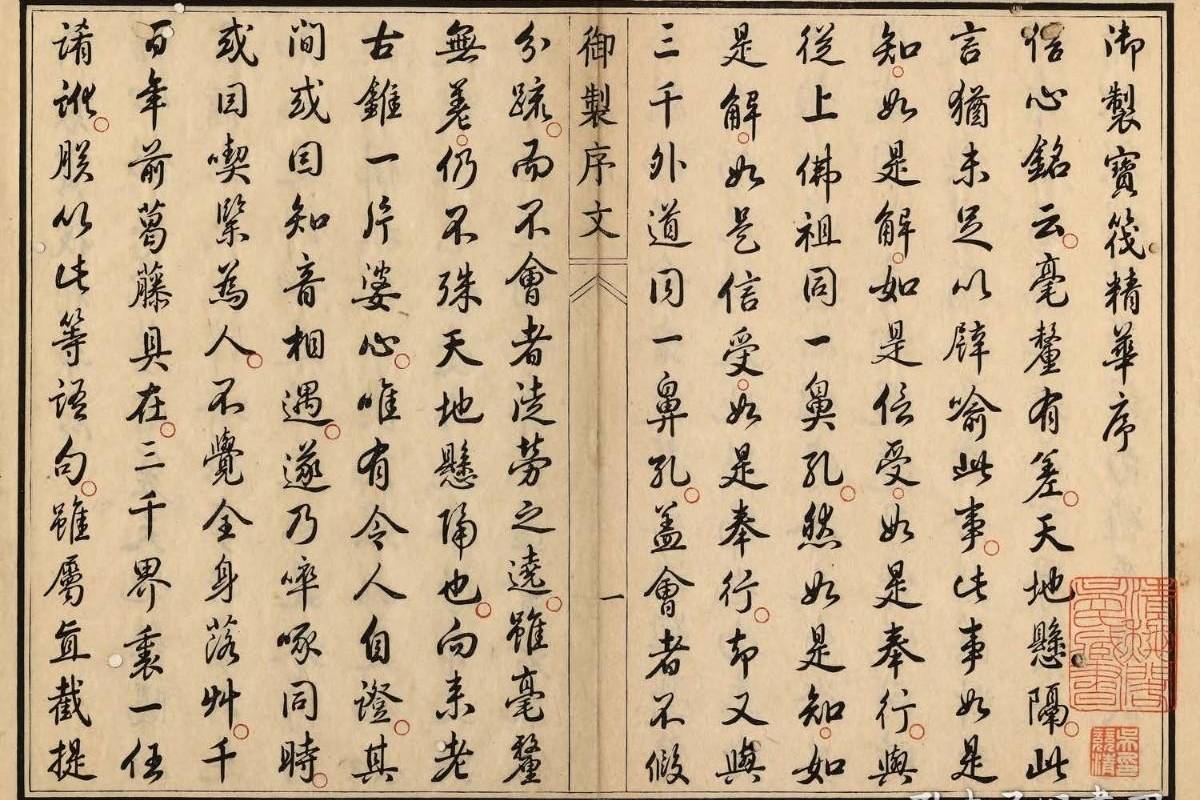 御製寶筏精華序
信心銘云毫釐有差天地懸隔此
言猶未足以譬喻此事此事如是
知如是解如是信受如是奉行與
從上佛祖同一鼻孔然如是知如
是解如是信受如是奉行却又與
三千外道同一鼻孔蓋會者不假
御製序文
一
分疏而不會者徒勞之遶雖毫釐
無差仍不殊天地懸隔也向來老
古錐一片婆心唯有令人自證其
間或因知音相遇遂乃啐啄同時
或因喫緊為人不覺全身落艸千
百年前葛藤具在三千界裏一任
誵訛朕以此等語句雖屬直截提